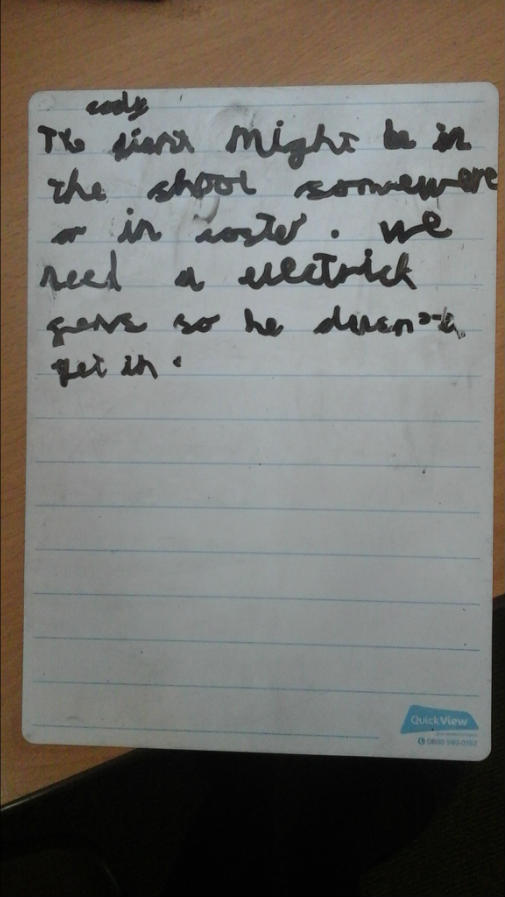 cody
The giant might be in
the shool somewere
or in coster. we
need a electrick
gens so he dusen't
get in.
QuickView
0800 980 0162